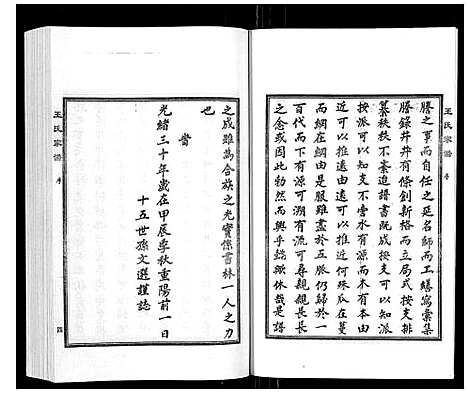 王氏家譜 序
謄之事而自任之延名師而工繕寫彙集
謄錄井井有條創新格而立局式按支排
纂秩秩不紊追譜書既成按支可以
按派可以知支不啻水有源而木有本由
近可以推遠由遠可以可近何殊瓜在蔓
而綱在綱由是服雖盡於五脈仍歸於一
百代而下有源可溯有流可尋親親長長
之念或因此勃然而興乎懿歟休哉是譜
之成雖為合族之光實係書林一人之力
也
嘗
光緒三十年歲在甲辰季秋重陽前一日
十五世孫文選謹誌
王氏家譜 序
四